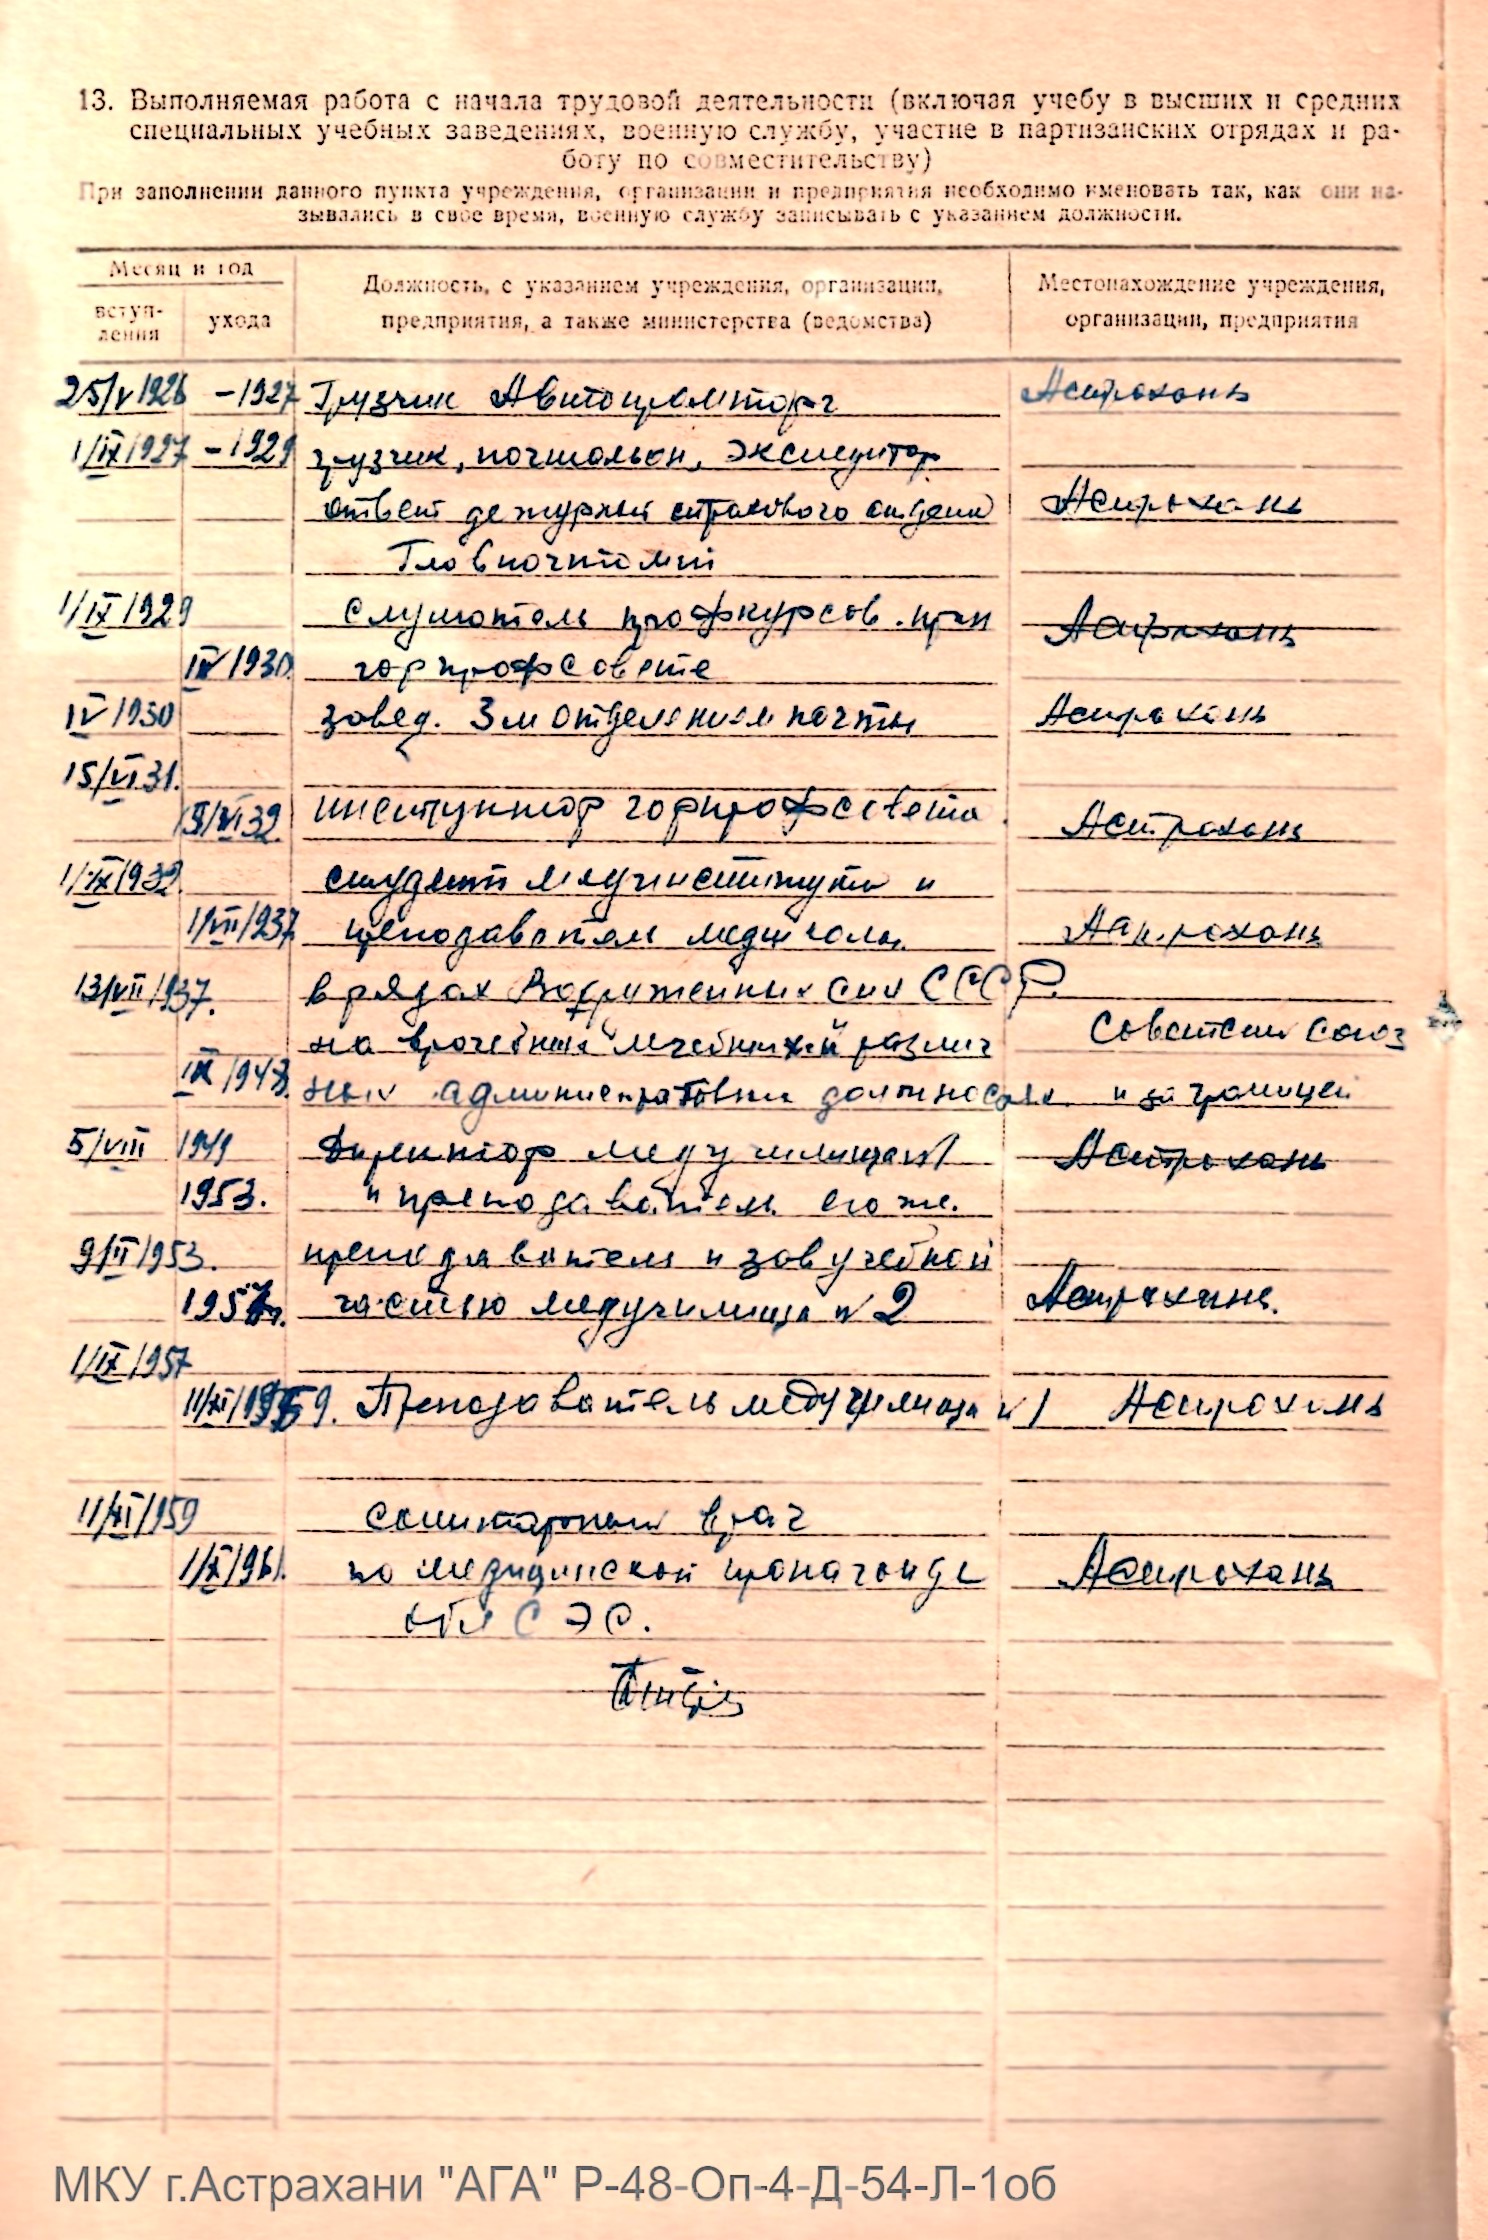 13. Выполняемая работа с начала трудовой деятельности (включая учебу в высших и средних
специальных учебных заведениях, военную службу, участие в партизанских отрядах и ра-
боту по совместительству)
При заполнении данного пункта учреждения, организации и предприятия необходимо именовать так, как они на-
зывались в свое время, военную службу записывать с указанием должности.
Месяц и год
вступ-
ления
ухода
Должность, с указанием учреждения, организации,
предприятия, а также министерства (ведомства)
Местонахождение учреждения,
организации, предприятия
25/V 1926 -1927 Грузчик Астрахань
1/IX 1927 -1929 грузчик, почтальон, экспедитор
ответ дежурный страхового отдела Астрахань
Главпочтамта
1/IX/1929 слушатель профкурсов при Астрахань
IV/1930. горпрофсовете
IV/1930 завед. 3м отделением почты Астрахань
15/VI 31.
VI 32 инструктор горпрофсовета Астрахань
1/IX/1932 студент мединститута и
1/VII/1937 преподаватель медшколы Астрахань
13/VII/1937. в рядах Вооруженных сил СССР.
на врачебных лечебных и различ Советский Союз
IX/1947. ных административных должностях и за границей
5/VIII 1949 Директор медучилища №1 Астрахань
1953. и преподаватель его же.
9/II/1953. преподаватель и зав учебной
1957г. частью медучилища №2 Астрахань.
1/IX/1957
11/XI/1959. Преподаватель медучилища №1 Астрахань
11/XI/1959 Санитарный врач
1/X/1961. по медицинской пропаганде Астрахань
обл СЭС.
МКУ г.Астрахани "АГА" Р-48-Оп-4-Д-54-Л-1об